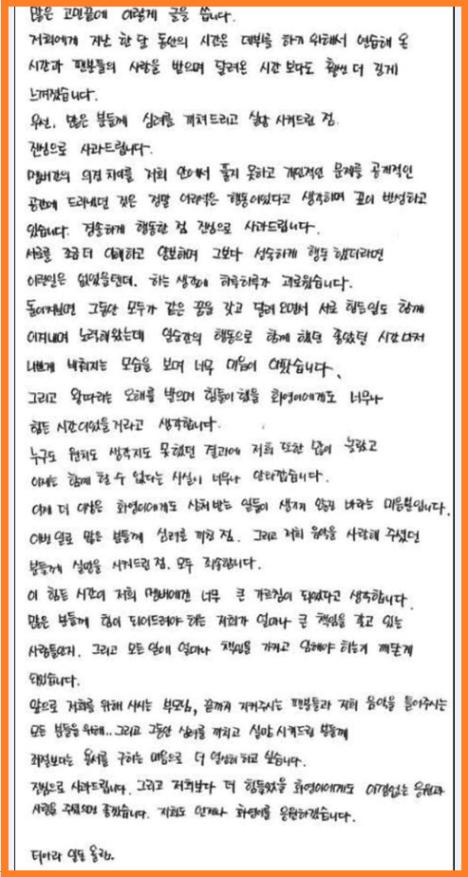 많은 고민끝에 이렇게 글을 씁니다.
저희에게 지난 한 달 동안의 시간은 데뷔를 하기 위해서 연습해 온
시간과 팬분들의 사랑을 받으며 달려온 시간 보다도 훨씬 더 길게
느껴졌습니다.
우선, 많은 분들께 심려를 끼쳐드리고 실망 시켜드린 점
진심으로 사과드립니다.
멤버간의 의견 차이를 저희 안에서 풀지 못하고 개인적인 문제를 공개적인
공간에 드러냈던 것은 정말 어리석은 행동이었다고 생각하며 깊이 반성하고
있습니다. 경솔하게 행동한 점 진심으로 사과드립니다.
서로를 조금 더 이해하고 양보하며 그보다 성숙하게 행동 했더라면
이런일은 없었을텐데. 하는 생각에 하루하루가 괴로웠습니다.
돌이켜보면 그동안 모두가 같은 꿈을 갖고 달려 오면서 서로 힘든일도 함께
이겨내며 노력해왔는데 일순간의 행동으로 함께 했던 좋았던 시간마저
나쁘게 비춰지는 모습을 보며 너무 마음이 아팠습니다.
그리고 왕따라는 오해를 받으며 힘들어했을 화영이에게도 너무나
힘든 시간이었을거라고 생각합니다.
누구도 원치도 생각지도 못했던 결과에 저희 또한 많이 놀랐고
이제는 함께 할 수 없다는 사실이 너무나 안타깝습니다.
이제 더 이상은 화영이에게도 상처받는 일들이 생기지 않길 바라는 마음뿐입니다.
이번 일로 많은 분들께 심려를 끼친 점. 그리고 저희 음악을 사랑해 주셨던
분들께 실망을 시켜드린 점. 모두 죄송합니다.
이 힘든 시간이 저희 멤버에겐 너무 큰 가르침이 되었다고 생각합니다.
많은 분들께 힘이 되어드려야 하는 저희가 얼마나 큰 책임을 갖고 있는
사람들인지. 그리고 모든 일에 얼마나 책임을 가지고 임해야 하는지 깨닫게
되었습니다.
앞으로 저희를 위해 사시는 부모님, 끝까지 지켜주시는 팬분들과 저희 음악을 들어주시는
모든 분들을 위해.. 그리고 그동안 심려를 끼치고 실망 시켜드린 분들께
죄송보다는 용서를 구하는 마음으로 더 열심히 하고 싶습니다.
진심으로 사과드립니다. 그리고 저희보다 더 힘들었을 화영이에게도 아낌없는 응원과
사랑을 주셨으면 좋겠습니다. 저희도 언제나 화영이를 응원하겠습니다.
티아라 일동 올림.